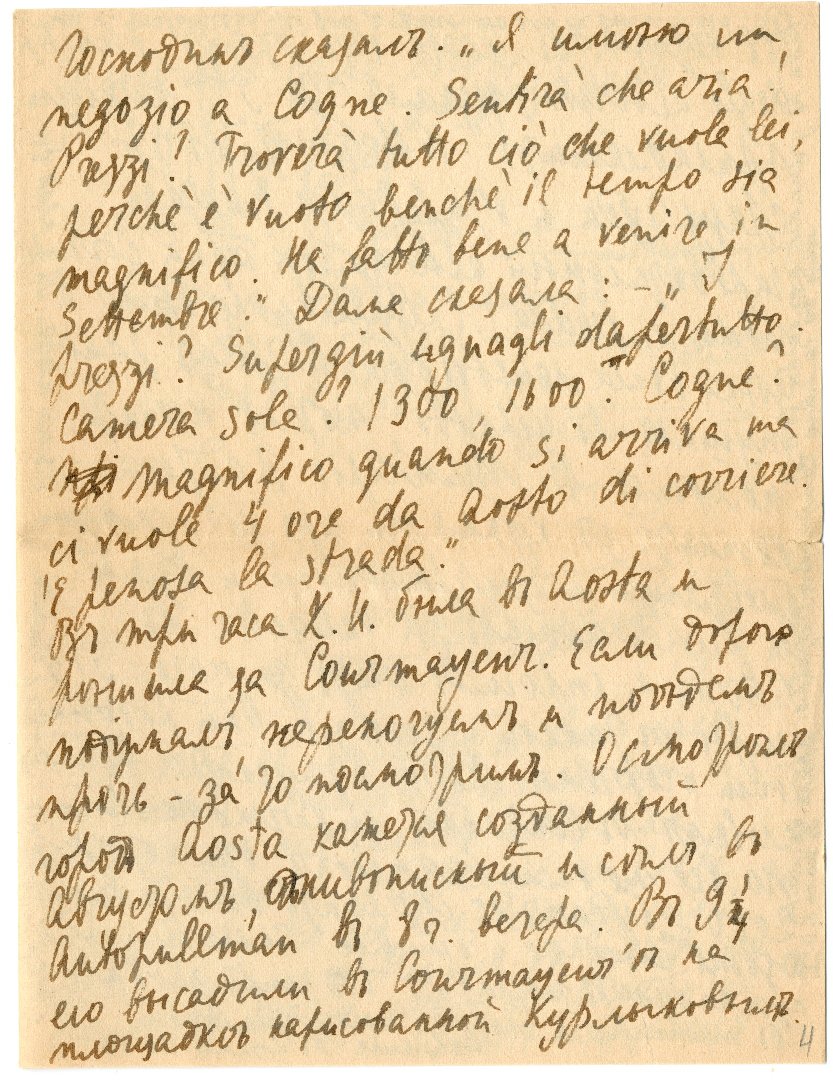 Господинъ сказалъ. „Я имѣю un
negozio a Cogne. Sentirà che aria!
Prezzi? Troverà tutto ciò che vuole lei,
perchè è vuoto benchè il tempo sia
magnifico. Ha fatto bene a venire in
Settembre." Дама сказала: – „I
prezzi? Supergiù uguagli dapertutto.
Camera sole? 1300, 1600. Cogne?
magnifico quando si arriva ma
ci vuole 4 ore da Aosto di corriere.
'E penosa la strada."
Въ три часа К. И. была въ Aosta и
рѣшила за Courmayeur. Если дорого
подумалъ, переночуемъ и поѣдемъ
прочь – за то посмотримъ. Осмотрѣлъ
городъ Aosta кажется созданный
Августомъ, живописный и сѣлъ въ
Autopullman въ 8 ч. вечера. Въ 9 1/4
его высадили въ Courmayeur'ѣ на
площадкѣ нарисованной Курлыковымъ.
4